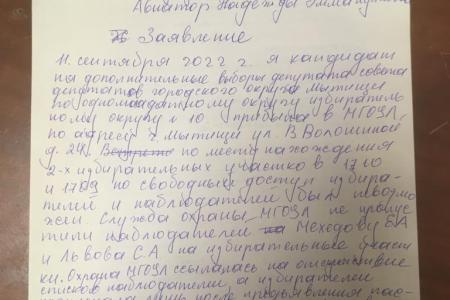 Авиатор Надежды Эммануиловны
Заявление
11. сентября 2022 г. я кандидат
на дополнительные выборы депутата совета
депутатов городского округа Мытищи
по одномандатному округу избиратель
ному округу N 10 прибыла в МГОЗЛ,
по адресу г. Мытищи ул. В. Волошиной
д. 24. по месту нахождения
2-х избирательных участков 1710
и 1709 но свободный доступ избира-
телей и наблюдателей был невозмо
жен. Служба охраны МГОЗЛ не пропус
тили наблюдателей Мехедову Е.А
и Львова С.А на избирательные участ
ки. Охрана МГОЗЛ ссылалась на отсутствие
списков наблюдателей, а избирателей
лишь после предъявления пас-